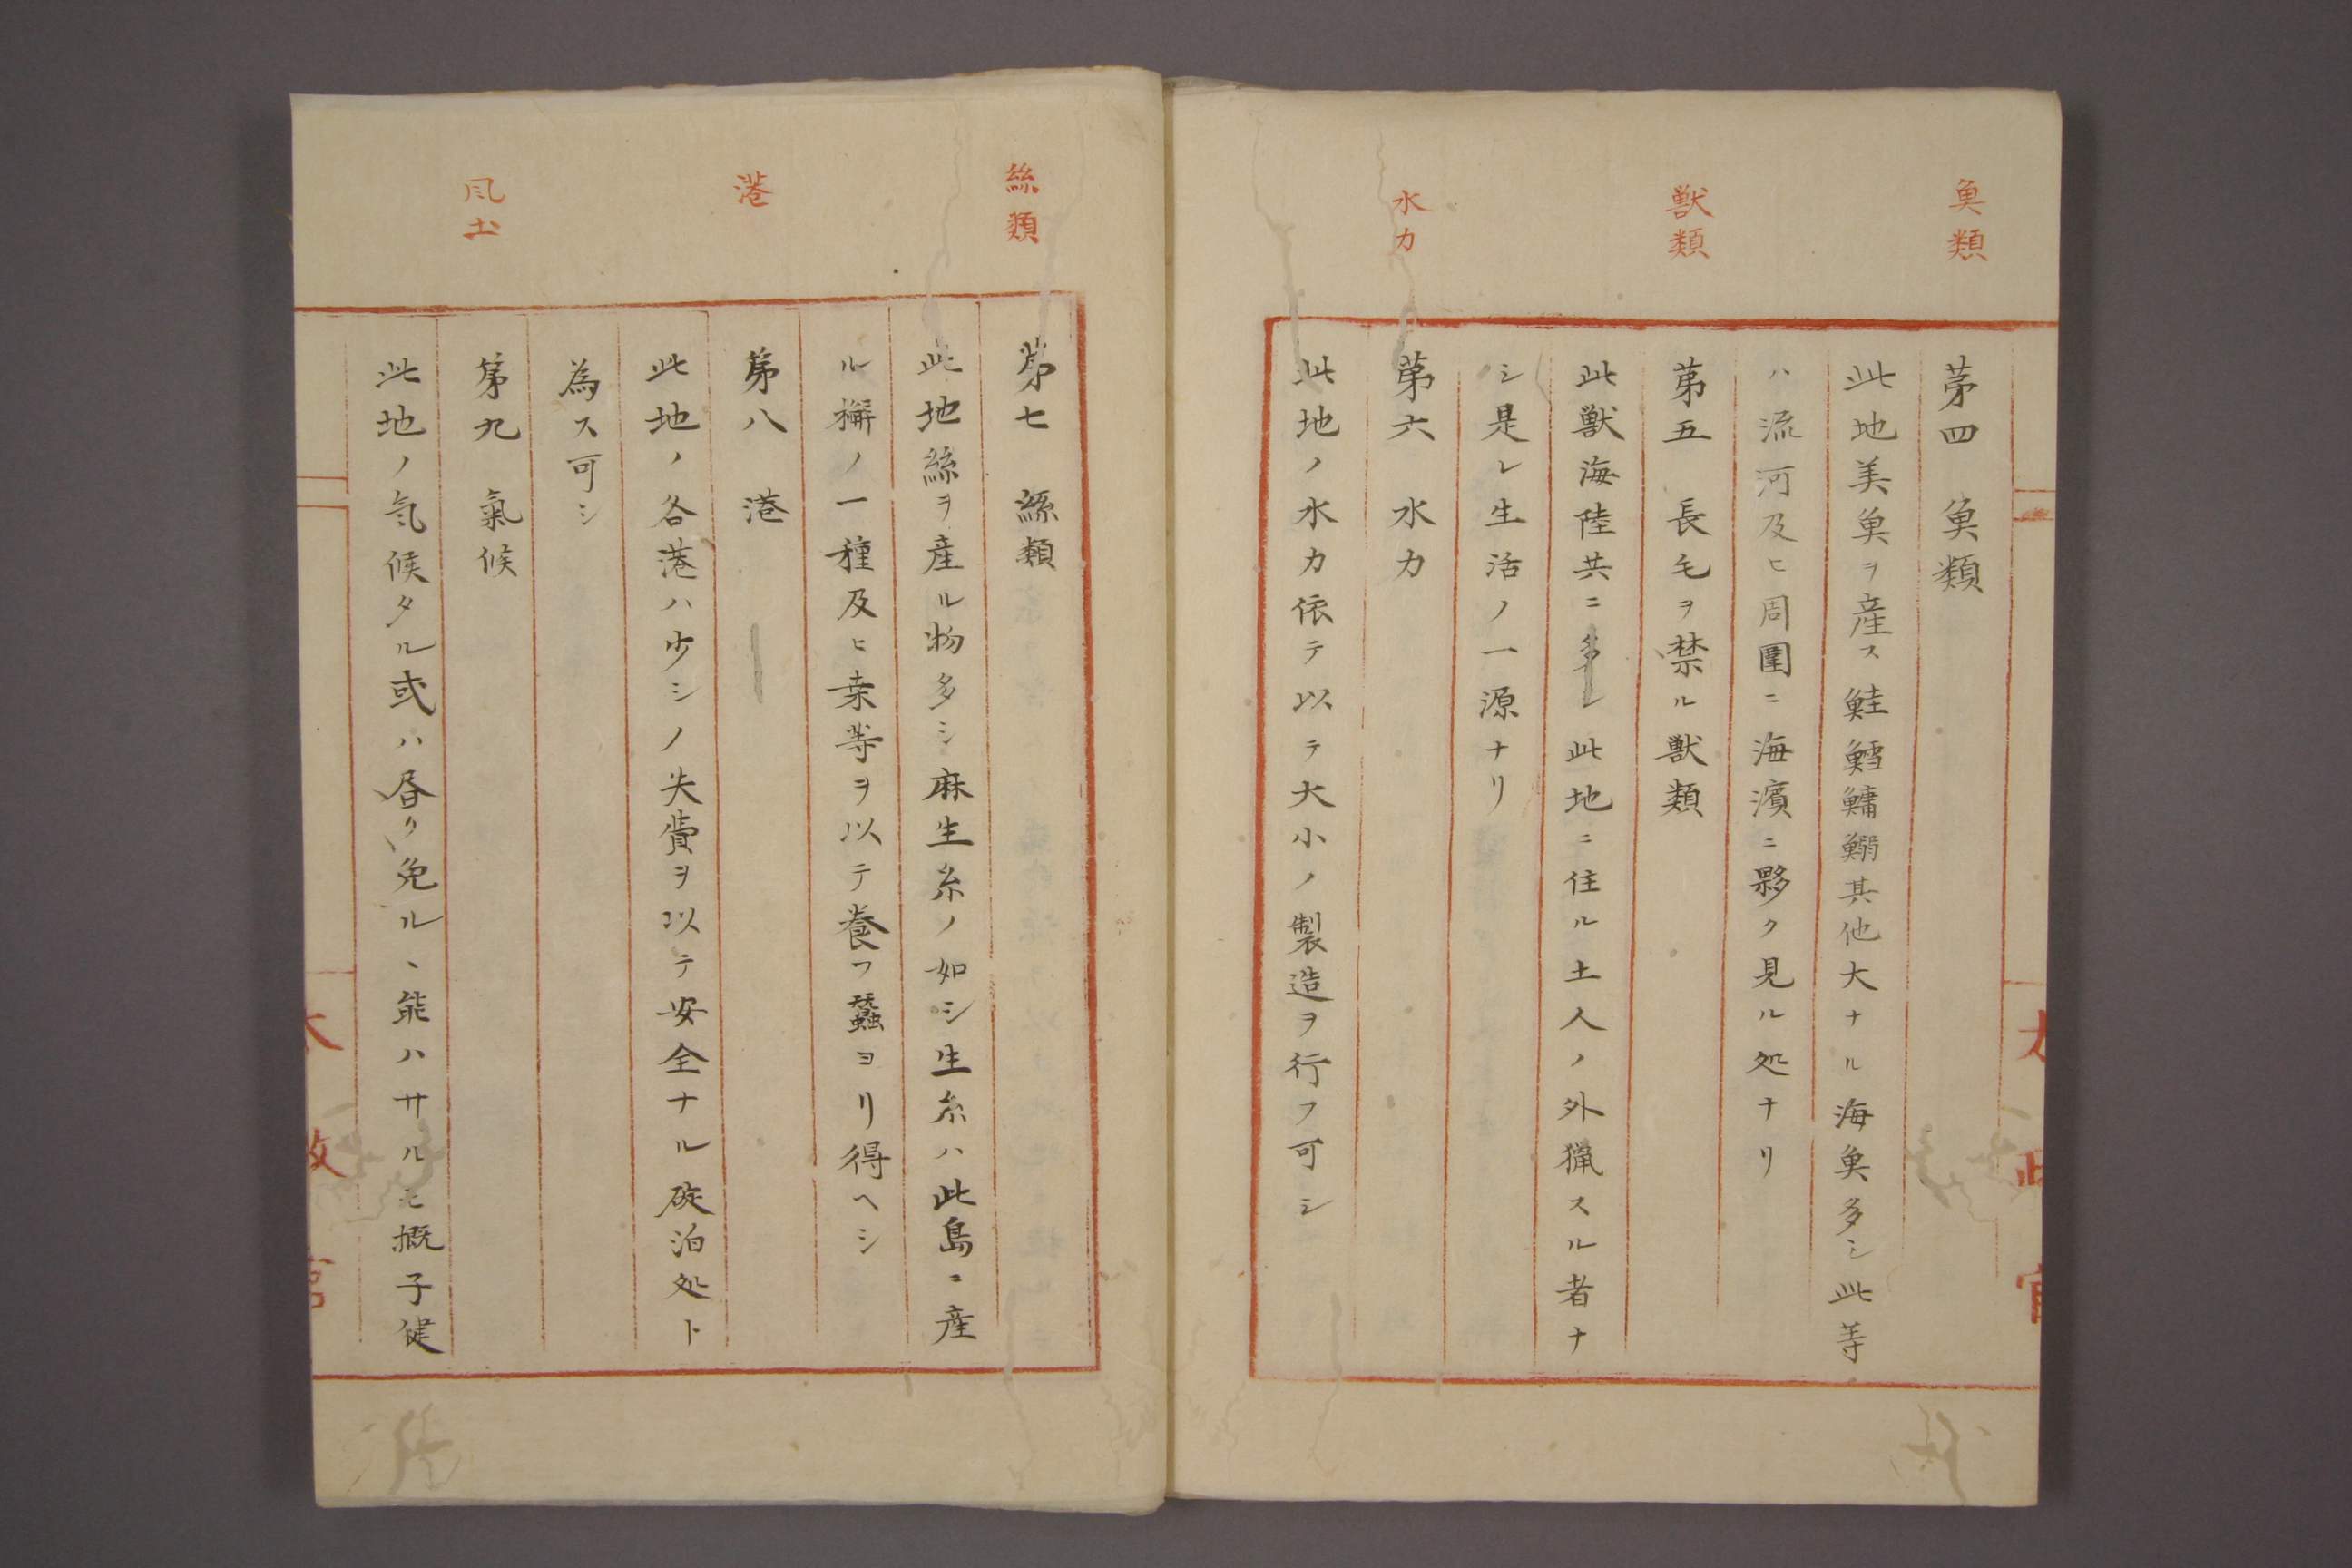 魚類
獣類
水力
第四 魚類
此地美魚ヲ産ス鮭鱈鱅鰯其他大ナル海魚多シ此等
ハ流河及ヒ周圍ニ海濱ニ夥ク見ル処ナリ
第五 長毛ヲ禁ル獣類
此獣海陸共ニ多シ此地ニ住ル土人ノ外猟スル者ナ
シ是レ生活ノ一源ナリ
第六 水力
此地ノ水力依テ以テ大小ノ製造ヲ行フ可シ
太政官
絲類
港
風土
第七 絲類
此地絲ヲ産ル物多シ麻生糸ノ如シ生糸ハ此島ニ産
ル檞ノ一種及ヒ桒等ヲ以テ養フ蠶ヨリ得ヘシ
第八 港
此地ノ各港ハ少シノ失費ヲ以テ安全ナル碇泊処ト
為ス可シ
第九 氣候
此地ノ気候タル或ハ昏ク免ルヽ能ハサルモ概子健
太政官